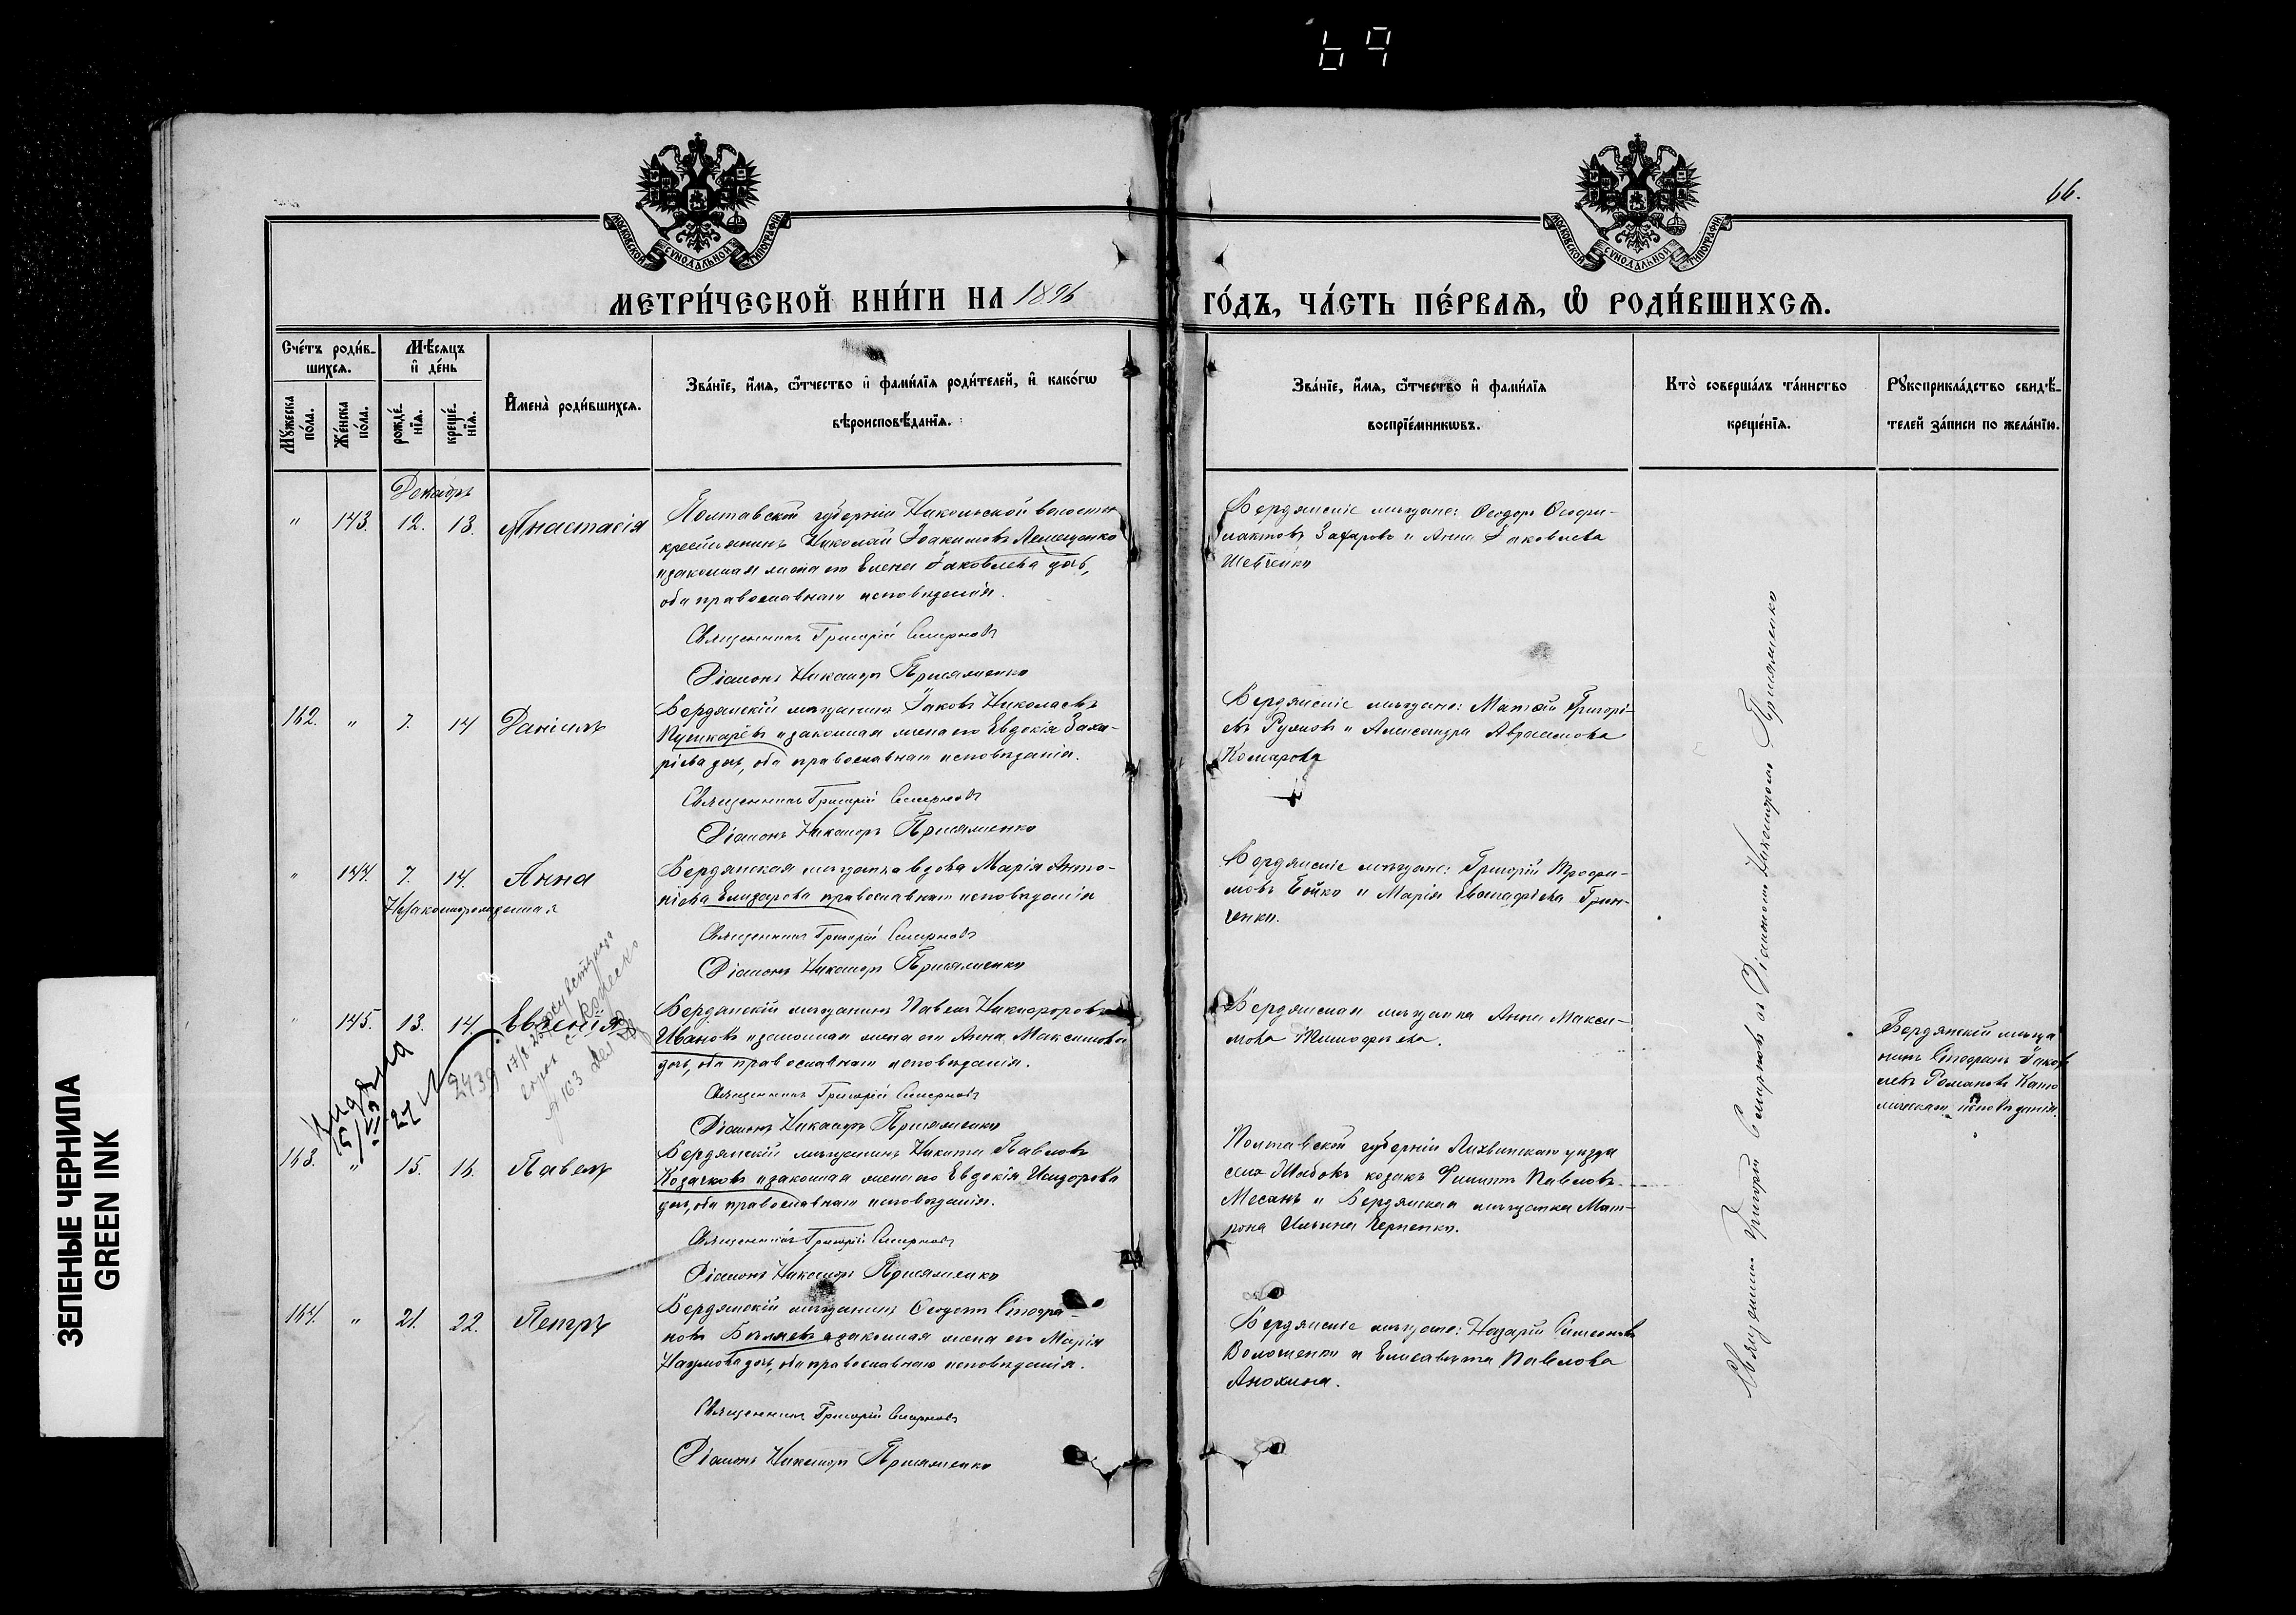 69
66.
МОСКОВСКОЙ СУНОДАЛЬНОЙ ТИПОГРАФІИ
МОСКОВСКОЙ СУНОДАЛЬНОЙ ТИПОГРАФІИ
МЕТРИ́ЧЕСКОЙ КНИ́ГИ НА 1896
ГО́ДЪ, ЧА́СТЬ ПЕ́РВАѦ, Ѡ РОДИ́ВШИХСѦ.
Сче́тъ роди́в-
шихсѧ.
Мꙋ́жеска по́ла.
Же́нска по́ла.
Мѣ́сѧцъ
и҆ де́нь
рожде́-
нїѧ.
креще́-
нїѧ.
И҆мена̀ роди́вшихсѧ.
Зва́нїе, и҆́мѧ, ѻ҆́тчество и҆ фами́лїѧ роди́телей, и҆ како́гѡ
вѣроисповѣ́данїѧ.
Зва́нїе, и҆́мѧ, ѻ҆́тчество и҆ фами́лїѧ
воспрїе́мникѡвъ.
Кто̀ соверша́лъ та́инство
креще́нїѧ.
Рꙋкоприкла́дство свидѣ́-
телей за́писи по жела́нїю.
Декабрь
" 143. 12. 13. Анастасія
Полтавской губерніи Никольской волости
крестьянинъ Николай Іоакимовъ Лемещенко
и законная жена его Елена Іаковлева дочь,
оба православнаго исповѣданія.
Священникъ Григорій Смирновъ
Діаконъ Никаноръ Присяженко
Бердянскіе мѣщане: Ѳеодоръ Ѳеофи-
лактовъ Захаровъ и Анна Іаковлева
Шевченко
162. " 7. 14 Даніилъ
Бердянскій мѣщанинъ Іаковъ Николаевъ
Пушкарёвъ и законная жена его Евдокія Заха-
ріева дочь, оба православнаго исповѣданія.
Священникъ Григорій Смирновъ
Діаконъ Никаноръ Присяженко
Бердянскіе мѣщане: Матѳій Григорі-
евъ и Александра Авраамова
Комарова
" 144. 7. 14. Анна
Незаконнорожденная
Бердянская мѣщанка вдова Марія Анто-
ніева Елизарова православнаго исповѣданія
Священникъ Григорій Смирновъ
Діаконъ Никаноръ Присяженко
Бердянскіе мѣщане: Григорій Трофи-
мовъ Бойко и Марія Евстафіева Грин-
ченко.
" 145. 13. 14. Евгенія
2439
Бердянскій мѣщанинъ Павелъ Никифоровъ
Ивановъ и законная жена его Анна Максимова
дочь, оба православнаго исповѣданія.
Священникъ Григорій Смирновъ
Діаконъ Никаноръ Присяженко
Бердянская мѣщанка Анна Макси-
мова Тимофѣева.
Бердянскій мѣща
нинъ Стефанъ Іаков
левъ Романовъ Като
лическаго исповѣданія.
163. " 15. 16. Павелъ
Бердянскій мѣщанинъ Никита Павловъ
Козачковъ и законная жена его Евдокія Исидорова
дочь, оба православнаго исповѣданія.
Священникъ Григорій Смирновъ
Діаконъ Никаноръ Присяженко
Полтавской губерніи Лохвицкаго уѣзда
козакъ Филиппъ Павловъ
Месанъ и Бердянская мѣщанка Мат-
рона Ильина Черненко.
164. " 21. 22. Петръ
Бердянскій мѣщанинъ Ѳеодотъ Стефа-
новъ Бѣляевъ и законная жена его Марія
Наумова дочь, оба православнаго исповѣданія.
Священникъ Григорій Смирновъ
Діаконъ Никаноръ Присяженко
Бердянскіе мѣщане: Назарій Симеоновъ
Волошенко и Елисавета Павлова
Анохина.
Священникъ Григорій Смирновъ съ Діакономъ Никаноромъ Присяженко
ЗЕЛЕНЫЕ ЧЕРНИЛА
GREEN INK